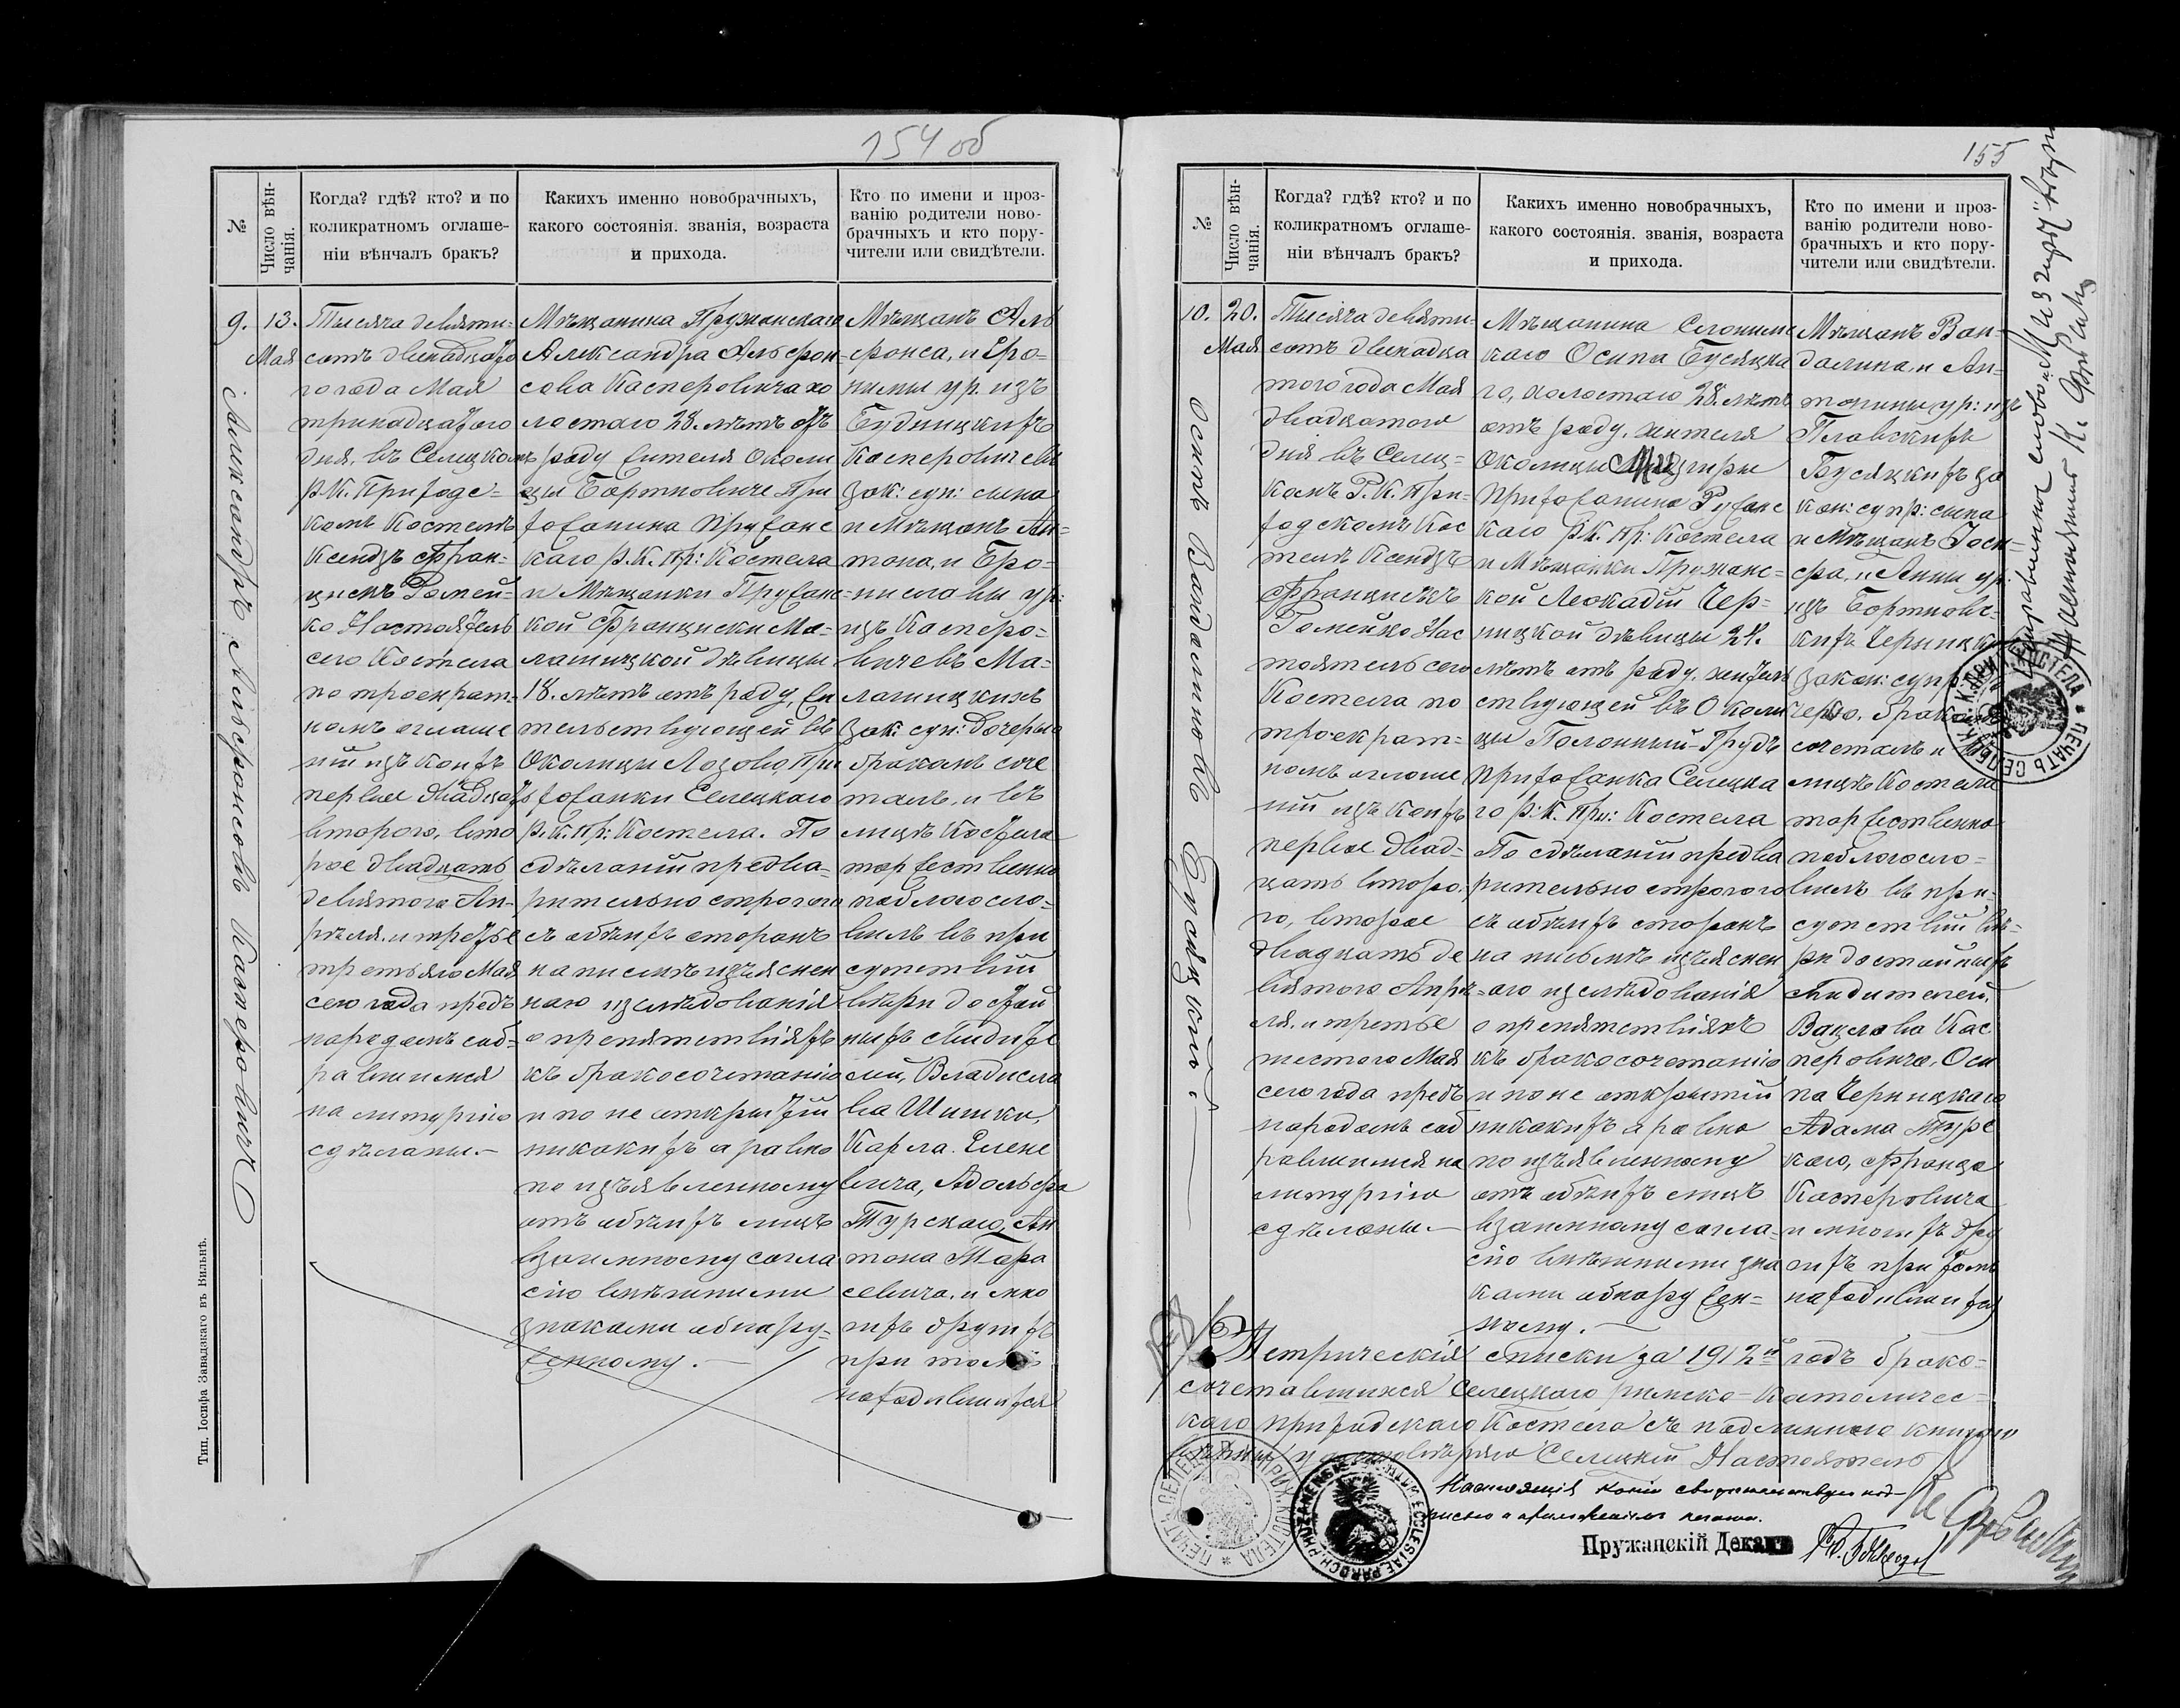 154 об
№
Число вѣн-
чанія.
Когда? гдѣ? кто? и по
коликратномъ оглаше-
ніи вѣнчалъ бракъ?
Какихъ именно новобрачныхъ,
какого состоянія. званія, возраста
и прихода.
Кто по имени и проз-
ванію родители ново-
брачныхъ и кто пору-
чители или свидѣтели.
9.
13.
Мая
Александръ Альфонсовъ Касперовичъ
Тысяча девяти-
сотъ двенадцато
го года Мая
тринадцатого
дня, въ Селецкомъ
Р. К. Приходс-
комъ Костелѣ
Ксендзъ Фран-
цискъ Ромей-
ко Настоятель
сего Костела
по троекрат-
номъ оглаше
ніи изъ коихъ
первое двадцать
второго, вто
рое двадцать
девятого Ап-
рѣля, и третье
третьяго Мая
сего года предъ
народомъ соб-
равшимся
на литургію
сдѣланы.-
Мѣщанина Пружанскаго
Александра Альфон-
сова Касперовича хо
лостаго 28. лѣтъ отъ
роду жителя Околи
цы Бортновиче При
хожанина Пружанс
каго Р. К. Пр: Костела
и Мѣщанки Пружанс-
кой Франциски Ма-
лашицкой дѣвицы
18. лѣтъ отъ роду, жи
тельствующей въ
Околицы Лозово, При
хожанки Селецкаго
Р. К. Пр: Костела. По
сдѣланіи предва-
рительно строгого
съ обѣихъ сторонъ
на письмѣ изъяснен
ного изслѣдованія
о препятствіяхъ
къ бракосочетанію
и по не открытіи
никакихъ а равно
по изъявленному
отъ обѣихъ лицъ
взаимному согла
сію внѣшними
знаками обнару-
женному.-
Мѣщанъ Аль
фонса, и Еро-
нимы ур. изъ
Будницкихъ
Касперовичевъ
зак: суп: сына
и Мѣщанъ Ан-
тона, и Бро-
ниславы ур:
изъ Касперо-
вичевъ Ма-
лашицкихъ
зак: суп: дочерью
бракомъ соче
талъ, и въ
лицѣ Костела
торжественно
поблагосло-
вилъ въ при
сутствіи
вѣры достой
ныхъ свидѣте
лей, Владисла
ва Шишки,
Карла Еленс
вича, Адольфа
Турскаго, Ан
тона Тара
севича, и мно
гихъ другихъ
при томъ
находившихся
Тип. Іосифа Завадзкаго въ Вильнѣ.
155
№
Число вѣн-
чанія.
Когда? гдѣ? кто? и по
коликратномъ оглаше-
ніи вѣнчалъ бракъ?
Какихъ именно новобрачныхъ,
какого состоянія. званія, возраста
и прихода.
Кто по имени и проз-
ванію родители ново-
брачныхъ и кто пору-
чители или свидѣтели.
10.
20.
Мая
Осипъ Вандалиновъ Бусяцкій.
Тысяча девяти-
сотъ двенадца
того года Мая
двадцатого
дня въ Селец-
комъ Р. К. При-
ходскомъ Кос
телѣ Ксендзъ
Францискъ
Ромейко Нас
тоятель сего
Костела по
троекрат-
номъ оглаше
ніи изъ коихъ
первое двад-
цать второ-
го, второе
двадцать де
вятого Апрѣ-
ля, и третье
шестого Мая
сего года предъ
народомъ соб
равшимся на
литургію
сдѣланы.-
Мѣщанина Слонимс
каго Осипа Бусяцка
го, холостаго 28. лѣтъ
отъ роду, жителя
Околицы Мизгиры
Прихожанина Ружанс
каго Р. К. Пр: Костела
и Мѣщанки Пружанс-
кой Леокадіи Чер-
ницкой дѣвицы 24.
лѣтъ отъ роду, житель
ствующей въ Околи
цы Полонный-Грудъ
Прихожанка Селецка
го Р: К. При: Костела
По сдѣланіи предва
рительно строгого
съ обѣихъ сторонъ
на письмѣ изъяснен
-аго изслѣдованія
о препятствіяхъ
къ бракосочетанію
и по не открытіи
никакихъ а равно
по изъявленному
отъ обѣихъ лицъ
взаимному согла-
сію внѣшними зна
ками обнаружен-
ному.-
Мѣщанъ Ван-
далина, и Ан-
тонины ур: изъ
Плавскихъ
Бусяцкихъ за
кон: супр: сына
и Мѣщанъ Іоси-
фа, и Анны ур:
изъ Бортновс-
кихъ Черницки
закон: супр:
черью, бракомъ
сочеталъ и въ
лицѣ Костела
торжественно
поблагосло-
вилъ въ при-
сутствіи вѣ-
ры достойныхъ
свидѣтелей,
Вацлава Кас
перовича, Оси
па Черницкаго
Адама Турс
каго, Франца
Касперовича
и многихъ дру
гихъ при томъ
находившихся
Исправленное слово "Мизгиры" вѣрно
Настоятель К.
ПЕЧАТЬ СЕЛЕЦК. Р. К. ПРИХ. КОСТЕЛА
Метрическія списки за 1912й годъ брако-
сочетавшихся Селецкаго римско-католичес-
каго приходскаго Костела съ подлинною книгою
вѣрны удостовѣряю Селецкій Настоятель
К.
ПЕЧАТЬ СЕЛЕЦ. ПРИХ. КОСТЕЛА
ECCLESIAE PAROCH. PRUZANENSIS
Настоящія копіи свидѣтельствую под-
писью и приложеніемъ печати.
Пружанскій Деканъ